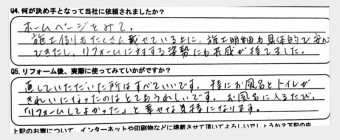 Q4. 何が決め手となって当社に依頼されましたか?
ホームページをみて。
施工例もたくさん載せている上に、施工明細も具体的で安心
できたし、リフォームに対する姿勢にも共感が持てました。
Q5. リフォーム後、実際に使ってみていかがですか?
直していただいた所はすべていいです。特にお風呂とトイレが
きれいになったのはとてもうれしいです。お風呂に入るたび、
リフォームしてよかったぁと幸せな気持になります。
上記のお声について、インターネットや印刷物などに掲載させて頂いてよろしいでしょうか?下記の中